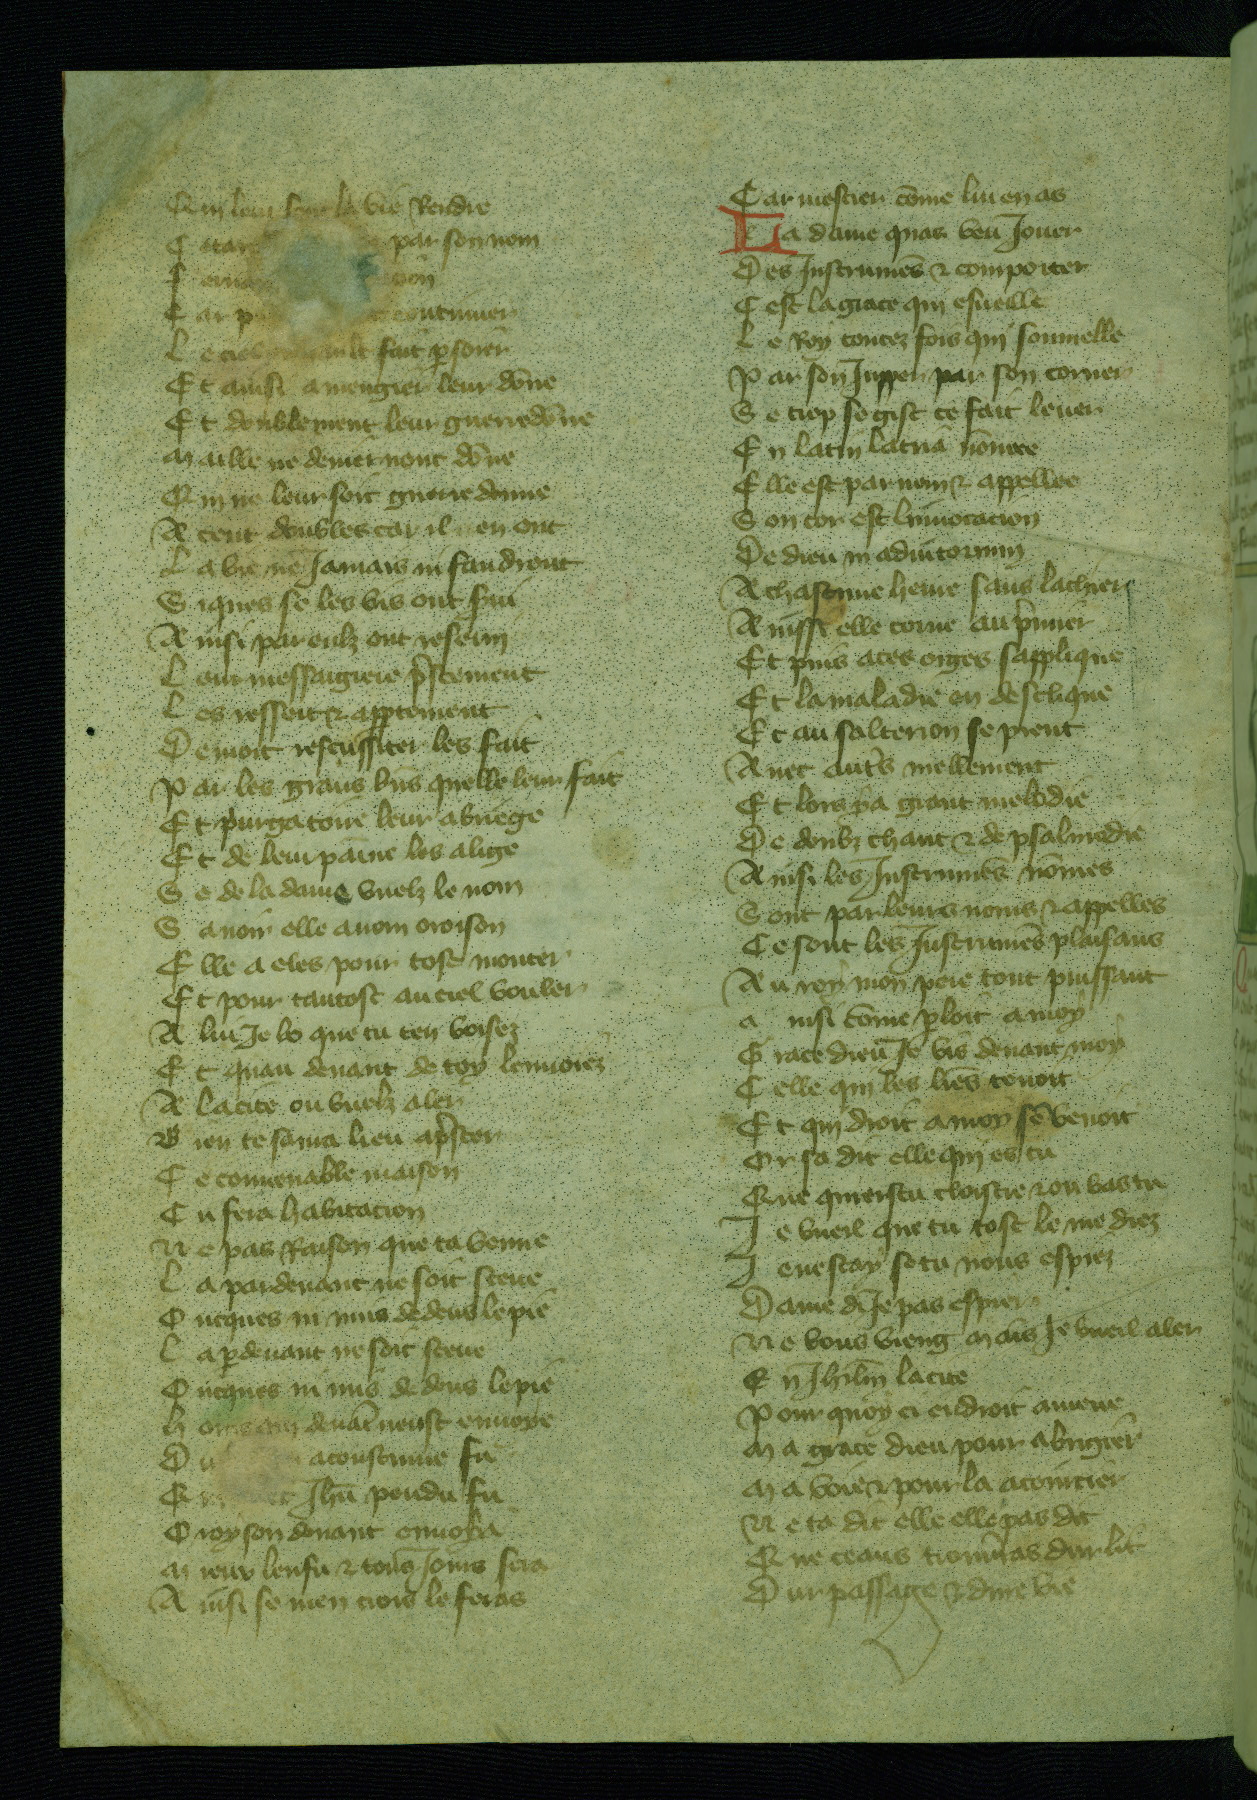 Qui leur leur la vie Rendre
par son nom
cion
Car p continuer
Le ciel fait p̲sorir
Et ainsi a mengier leur dōne
Et doublement leur guerredōne
Maille ne denier nont dōne
Qui ne leur soit guerredonne
A cent doubles car il en ont
La vie ne Jamais ni faudront
Siques se les vis ont serui
Ainsi par eulz ont reserui
Leur messaigiere p̄stement
Les ressort & appertement
De mort resussiter les fait
Par les grans biēs quelle leur fait
Et purgatoire leur abriege
Et de leur paine les alige
Se de la dame vuelz le nom
Sauoir elle a nom oroison
Elle a eles pour tost monter
Et pour tantost au ciel vouler
A lui Je lo que tu ten voisez
Et quau deuant de toy lenuoiez
A la cite ou vuelz aler
Bien te saura lieu ap̄ster
Ce conuenable maison
Cu sera habitacion
Ne pas Raison que ta venue
La pardeuant ne soit sceue
Oncques ni mis dedens le pie
La p̲deuant ne soit sceue
Oncques ni mis dedens le pie
Homs qui deuāt neust enuoye
Du acoustume fu
Q Jhū pendu fu
Oroyson deuant enuoya
Mieux lensu & tous Jours sera
Ainsi se men crois le feras
Car mestier cōme lui en as
La dame quas veu Jouer
Des Instrumēs & comporter
Cest la grace qui esueille
Le Roy toutez fois qui sommelle
Par son Jupper par son corner
Se trop se gist ce fait leuer
En latin latria nōmee
Elle est par nom & appellee
Son cor est linuocacion
De dieu in adiutorium
A chascune heure sans lachier
Aussi elle corne au p̄mier
Et puis a ces orges sapplique
Et la maladie en desclique
Et au salterion se prent
Auec aut̄s mellement
Et lors p̲ a grant melodie
De doubz chant & de psalmodie
Ainsi les Instrumēs nōmes
Sont par leurs noms & appelles
Ce sont les Instrumēs plaisans
Au roy mon pere tout puissant
a insi cōme p̲loit a moy
Grace dieu Je vis deuant moy
Celle qui les liēs tenoit
Et qui droit a moy se venoit
Or sa dit elle qui es tu
Que quierstu cloistre & ou vas tu
Je vueil que tu tost le me diez
Je ne scay se tu nous espiez
Dame di Je pas espier
Ne vous vieng mais Je vueil aler
En Jhrlm̄ la cite
Pour quoy ci endroit amene
Ma grace dieu pour abrigier
Ma voie & pour la acointier
Ne ta dit elle elle pas dit
Que ceans trouueras dur lit
Dur passage & dure vie